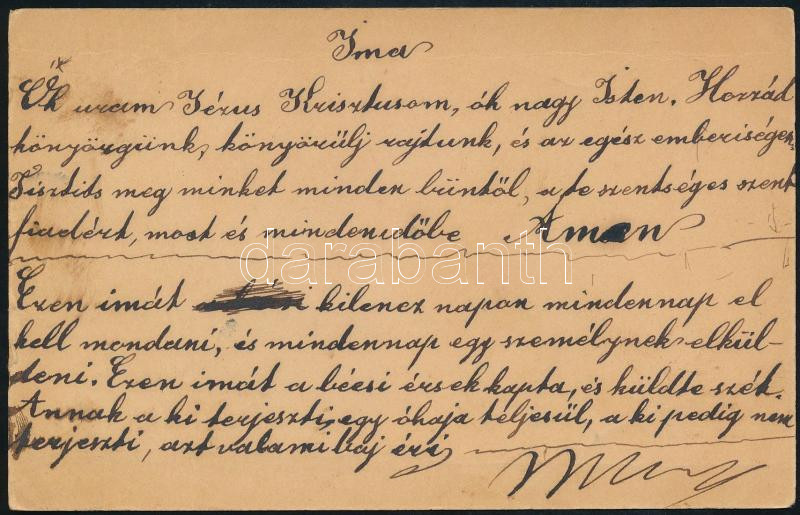 Ima
Óh uram Jézus Krisztusom, óh nagy Isten. Hozzád
könyörgünk, könyörülj rajtunk, és az egész emberiségen.
Tisztits meg minket minden büntöl, a te szentséges szent
fiadért, most és mindenidöbe Amen
darabanth
Ezen imát kilencz napon mindennap el
kell mondani, és mindennap egy személynek elkül-
deni. Ezen imát a bécsi érsek kapta, és küldte szét.
Annak a ki terjeszti, egy óhaja teljesül, a ki pedig nem
terjeszti, azt valami baj éri